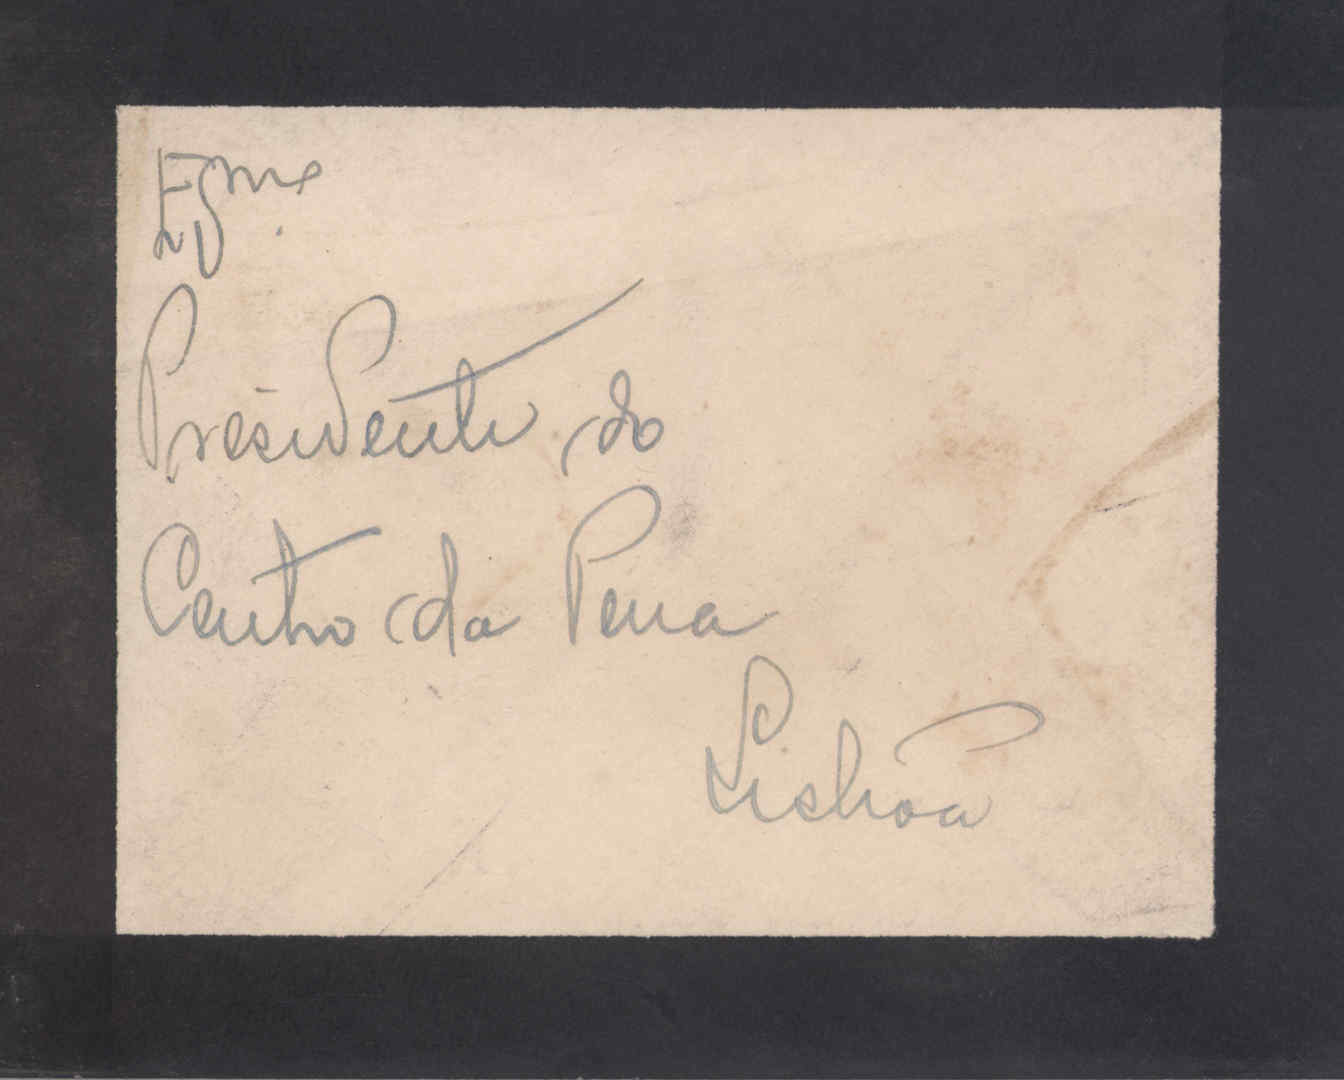 Exmo.
Presidente do
Centro da Pena
Lisboa